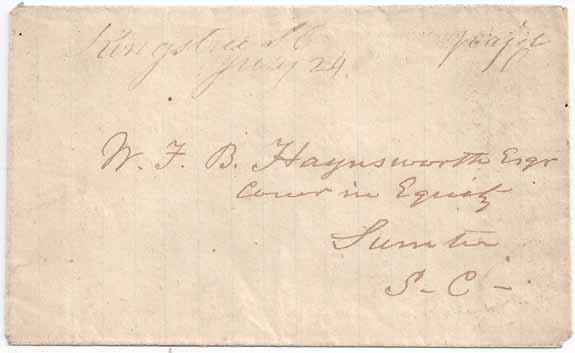 Kingstree S C paid
May 24.
W. F. B. Haynsworth Esqr
Comr in Equity
Sumter
S - C -